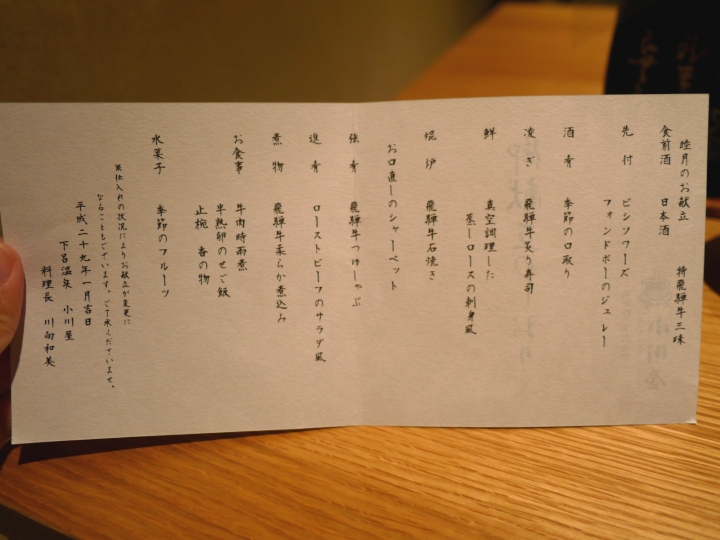 睦月のお献立　特飛騨牛三昧
食前酒　日本酒
先付　ビシソワーズ
フォンドボーのジュレー
酒肴　季節の口取り
凌ぎ　飛騨牛炙り寿司
鮮　真空調理した
蒸しロースの刺身風
焜炉　飛騨牛石焼き
お口直しのシャーベット
強肴　飛騨牛つけしゃぶ
進肴　ローストビーフのサラダ風
煮物　飛騨牛柔らか煮込み
お食事　牛肉時雨煮
半熟卵のせご飯
止椀　香の物
水菓子　季節のフルーツ
※仕入れの状況によりお献立が変更に
なることもございます。ご了承くださいませ。
平成二十九年一月吉日
下呂温泉　小川屋
料理長　川向和美